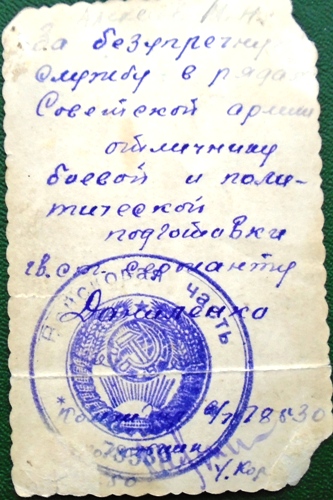 За безупречную
службу в рядах
Советской армии
отличнику
боевой и поли-
тической
подготовки
гв. ст. сержанту
Даниленко
Войсковая часть
в/ч 78530